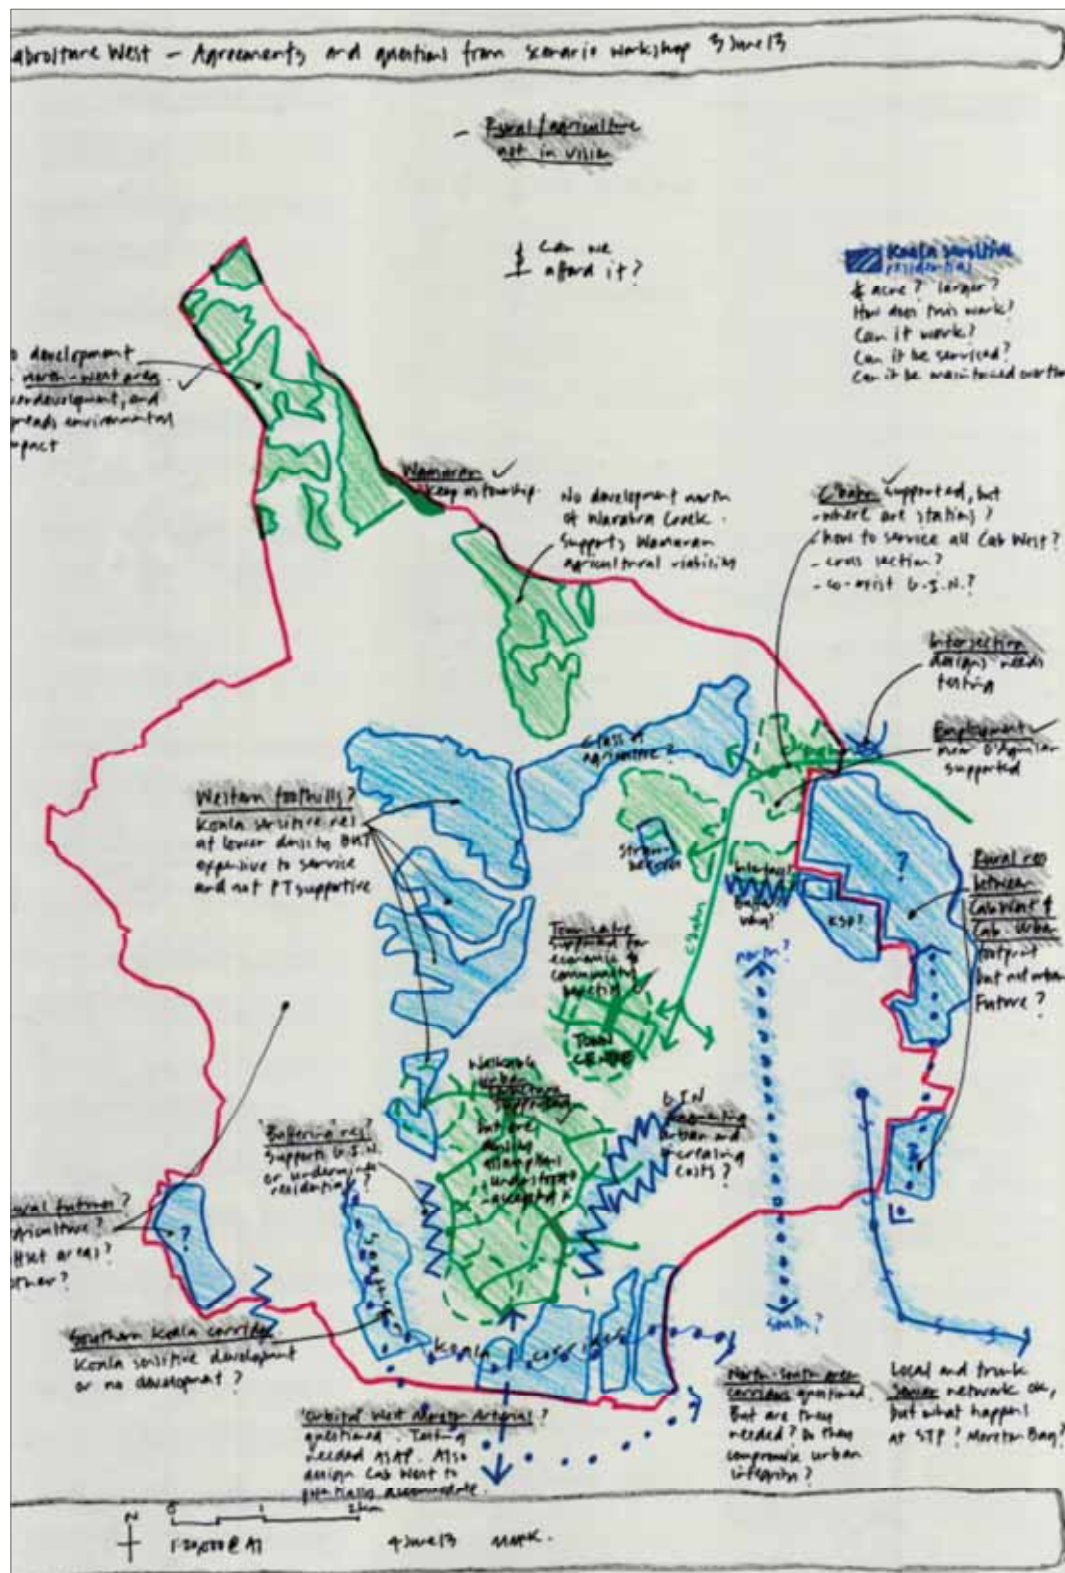 aboolture West - Agreements and questions from scenario workshop 3 June 13
- Rural/agriculture
not in vision
Can we
afford it?
Koala sensitive
residential
acre? larger?
How does this work?
Can it work?
Can it be serviced?
Can it be maintained overtim
o development
north-west area
erdevelopment, and
preads environmental
mpact
Wamuran ✓
Keep as township.
No development north
of Wararba Creek.
Supports Wamuran
agricultural viability
supported, but
- where are stations?
- how to service all Cab West?
- cross section?
- co-exist G.I.N.?
Intersection
designs needs
testing
Employment ✓
near D'Aguilar
supported
Class A
agriculture?
Western foothills?
Koala sensitive res
at lower density BUT
expensive to service
and not PT supportive
Straw-
berries
Interface?
?
KSD?
Rural res
between
Cab West &
Cab. Urban
footprint
but not urban
Future?
Town centre
supported for
economic &
community
benefits ✓
TOWN
CENTRE
north?
south?
Walkable
urban
structure
supported
but are
density
assumptions
understood &
accepted?
G.I.N
fragmenting
urban and
increasing
costs?
'Buffering res'?
Supports G.I.N.
or undermines
residential?
ural futures?
agriculture?
ffset areas?
other?
?
Southern
Koala corridor
Southern Koala corridor
Koala sensitive development
or no development?
'Orbital' West Moreton Arterial?
questioned. Testing
needed ASAP. Also
design Cab West to
potentially accommodate.
North-South green
corridors questioned.
But are they
needed? Do they
compromise urban
integrity?
Local and trunk
sewer network ok,
but what happens
at STP? Moreton Bay?
N
0 1 2km
1:20,000 @ A1
4 June 13